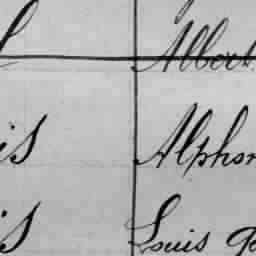 Albert
is Alphon
is Louis